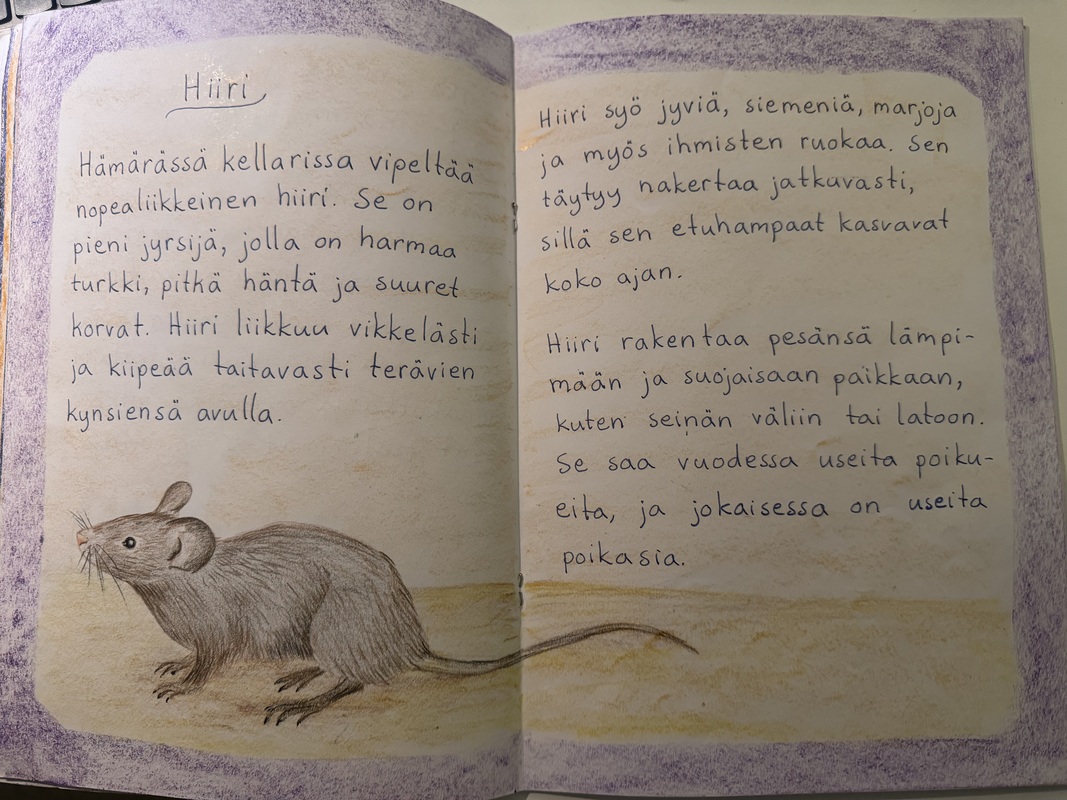 Hiiri
Hämärässä kellarissa vipeltää
nopealiikkeinen hiiri. Se on
pieni jyrsijä, jolla on harmaa
turkki, pitkä häntä ja suuret
korvat. Hiiri liikkuu vikkelästi
ja kiipeää taitavasti terävien
kynsiensä avulla.
Hiiri syö jyviä, siemeniä, marjoja
ja myös ihmisten ruokaa. Sen
täytyy nakertaa jatkuvasti,
sillä sen etuhampaat kasvavat
koko ajan.
Hiiri rakentaa pesänsä lämpi-
mään ja suojaisaan paikkaan,
kuten seinän väliin tai latoon.
Se saa vuodessa useita poiku-
eita, ja jokaisessa on useita
poikasia.